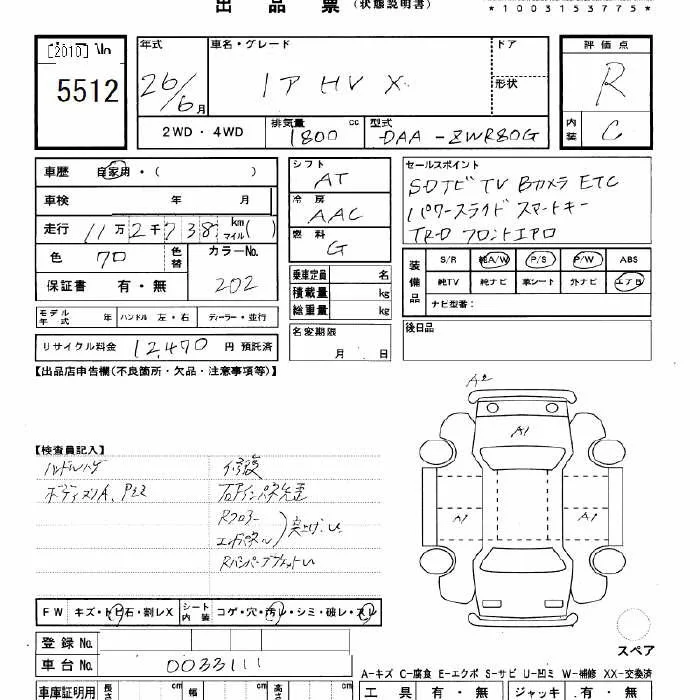 出品票(状態説明書)
*1003153775*
[2010] No
5512
年式
26/6月
車名・グレード
ノア HV X
ドア
形状
評価点
R
2WD・4WD
排気量 cc
1800
型式
DAA-ZWR80G
内装
C
車歴 自家用・( )
車検 年 月
走行 11万2千738 km マイル( )
色 クロ
色替
カラーNo.
202
保証書 有・無
シフト
AT
冷房
AAC
燃料
G
乗車定員 名
積載量 kg
総重量 kg
セールスポイント
SDナビ TV Bカメラ ETC
パワースライド スマートキー
TRD フロントエアロ
装備品
S/R 純A/W P/S P/W ABS
純TV 純ナビ 革シート 外ナビ エアロ
ナビ型番:
モデル年式 年 ハンドル 左・右 ディーラー・並行
名変期限
月 日
後日品
リサイクル料金 12,470 円 預託済
【出品店申告欄(不良箇所・欠品・注意事項等)】
A2
A1
【検査員記入】
ハンドルハゲ
修復
ボディスリA、
右インパネ先歪
Rフロアー
エンドパネル
突上げ
A1
A1
FW キズ・トビ石・割レX
シート内装 コゲ・穴・汚レ・シミ・破レ・スレ
登録No.
スペア
車台No.
0033111
A-キズ C-腐食 E-エクボ S-サビ U-凹ミ W-補修 XX-交換済
車庫証明用 長さ cm 幅 cm 高さ cm
工具 有・無 ジャッキ 有・無